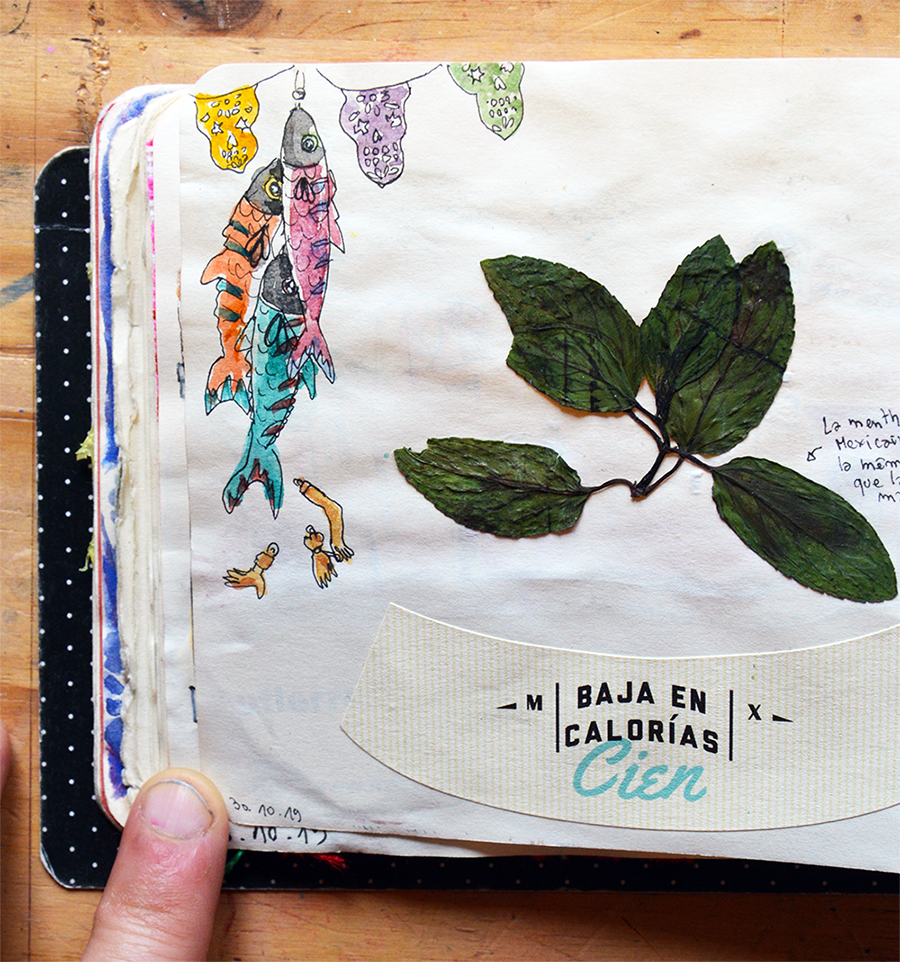 La menth
Mexicai
la mêm
que la
m
M BAJA EN X
CALORÍAS
Cien
30.10.19
.10.19